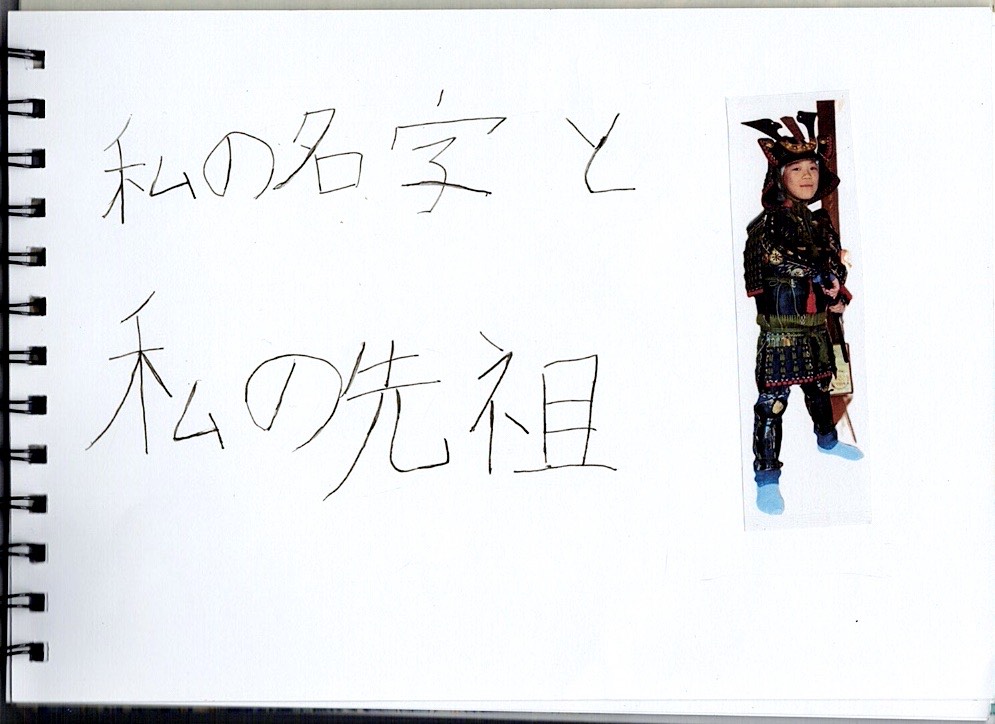 私の名字と
私の先祖